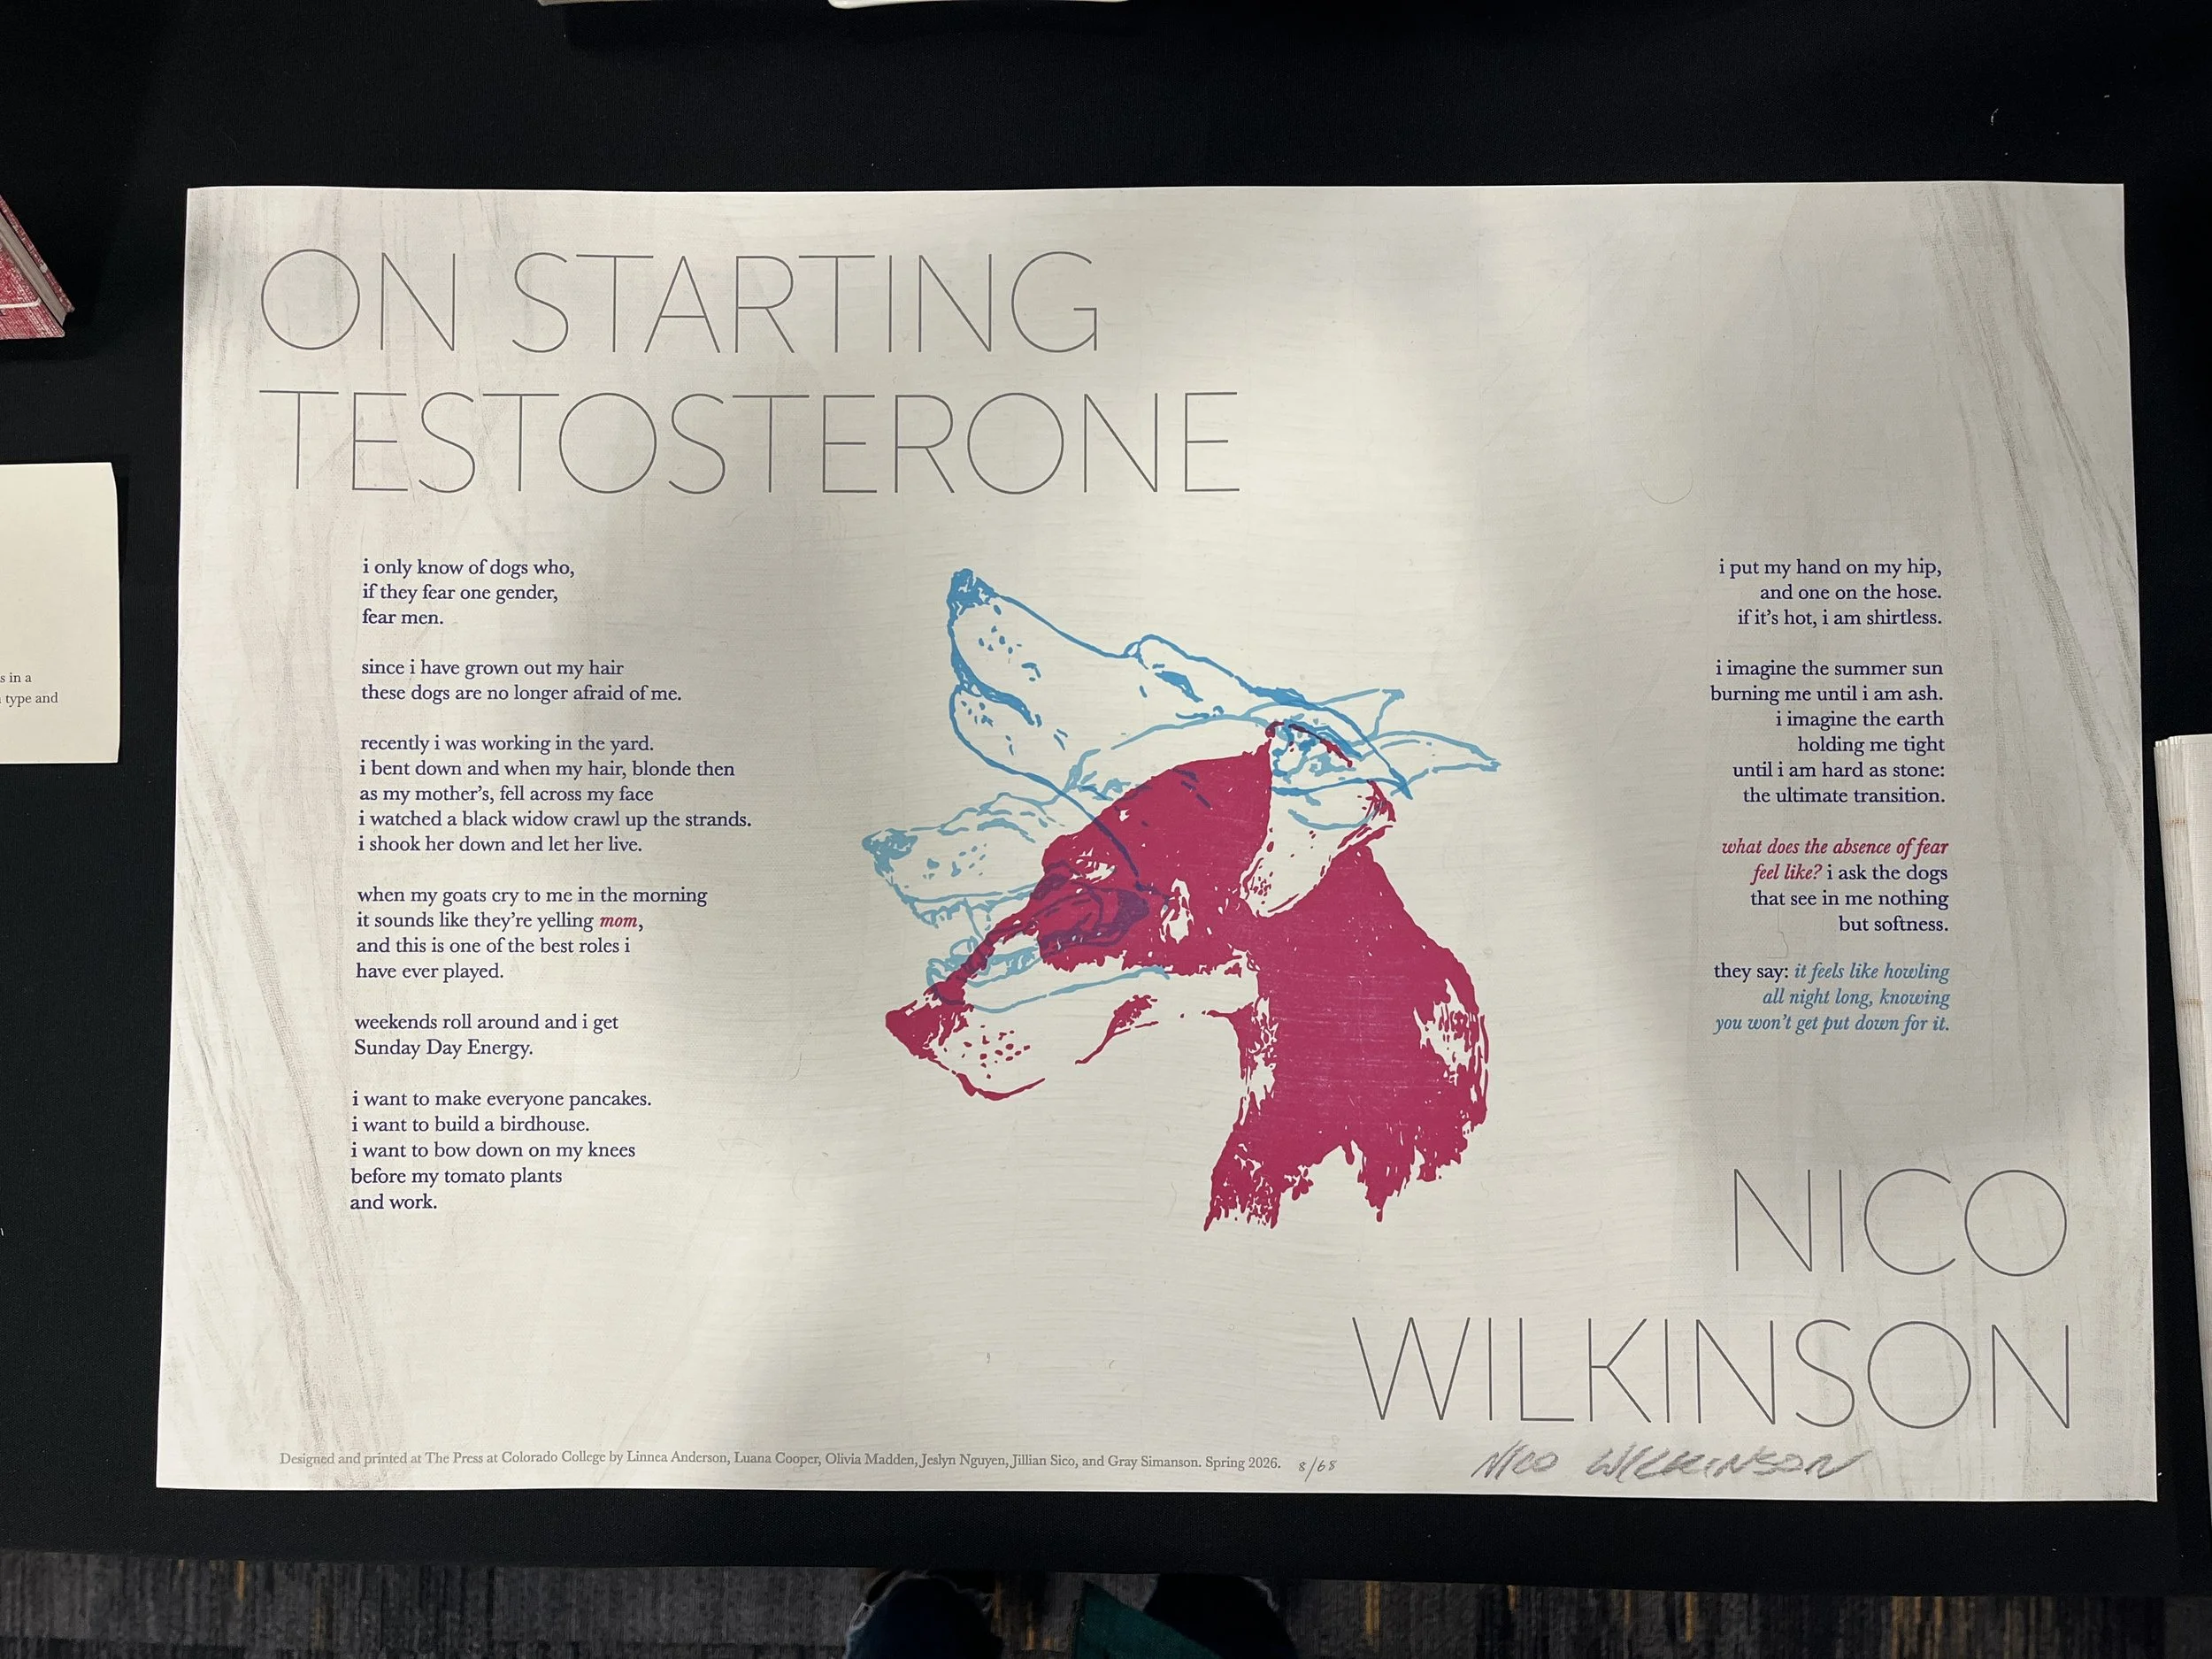 ON STARTING
TESTOSTERONE
i only know of dogs who,
if they fear one gender,
fear men.
since i have grown out my hair
these dogs are no longer afraid of me.
recently i was working in the yard.
i bent down and when my hair, blonde then
as my mother's, fell across my face
i watched a black widow crawl up the strands.
i shook her down and let her live.
when my goats cry to me in the morning
it sounds like they're yelling mom,
and this is one of the best roles i
have ever played.
weekends roll around and i get
Sunday Day Energy.
i want to make everyone pancakes.
i want to build a birdhouse.
i want to bow down on my knees
before my tomato plants
and work.
i put my hand on my hip,
and one on the hose.
if it's hot, i am shirtless.
i imagine the summer sun
burning me until i am ash.
i imagine the earth
holding me tight
until i am hard as stone:
the ultimate transition.
what does the absence of fear
feel like? i ask the dogs
that see in me nothing
but softness.
they say: it feels like howling
all night long, knowing
you won't get put down for it.
NICO
WILKINSON
Designed and printed at The Press at Colorado College by Linnea Anderson, Luana Cooper, Olivia Madden, Jeslyn Nguyen, Jillian Sico, and Gray Simanson. Spring 2026. 8/68
NICO WILKINSON
s in a
type and